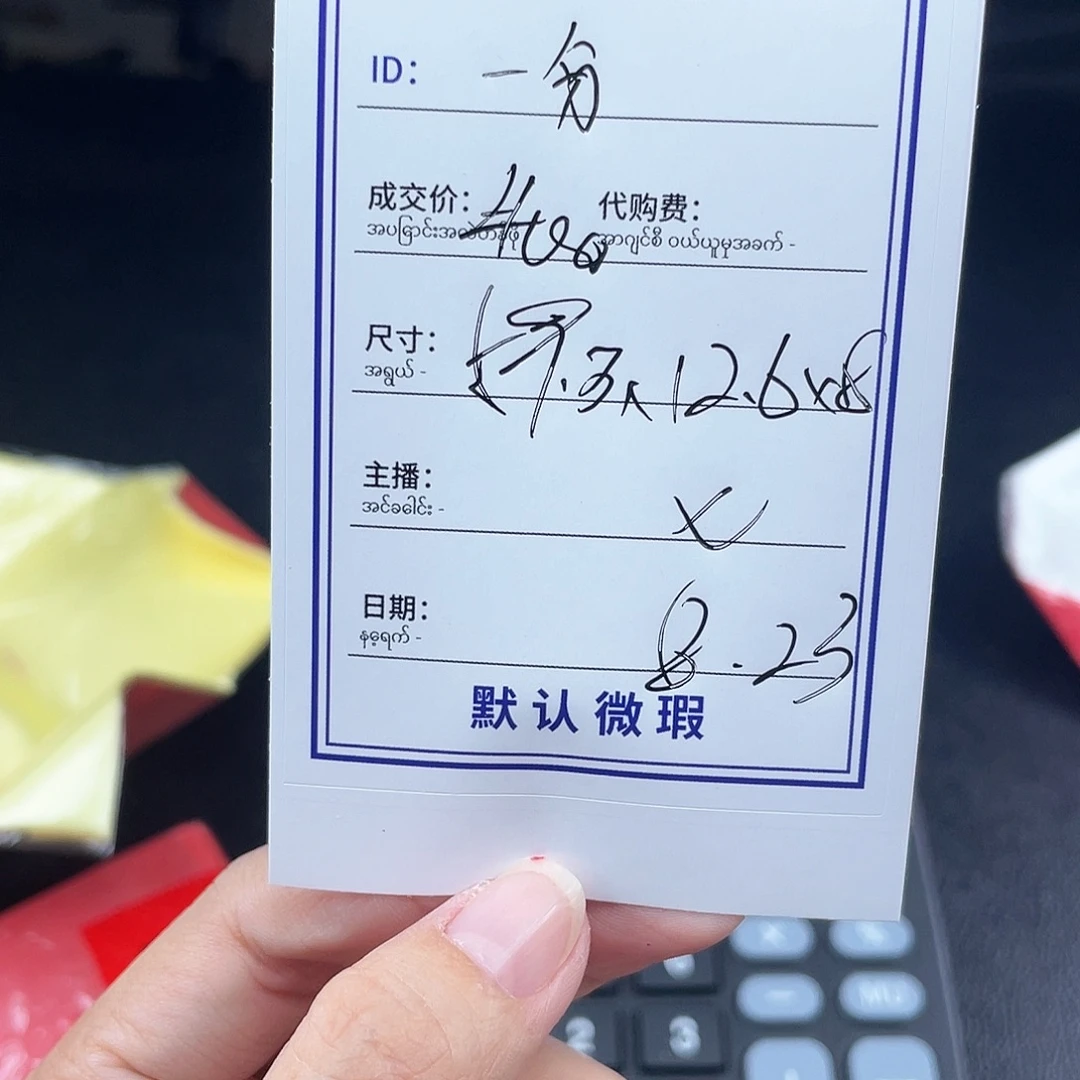 ID: 一分
成交价: 代购费:
အပြောင်းအလဲတန်ဖိုး အာဂျင်စီ ဝယ်ယူမှုအခက် -
尺寸: 17.3x12.6x8
အရွယ် -
主播: x
အင်ခေါင်း -
日期: 8.23
နေ့ရက် -
默认微瑕
2 3
MU